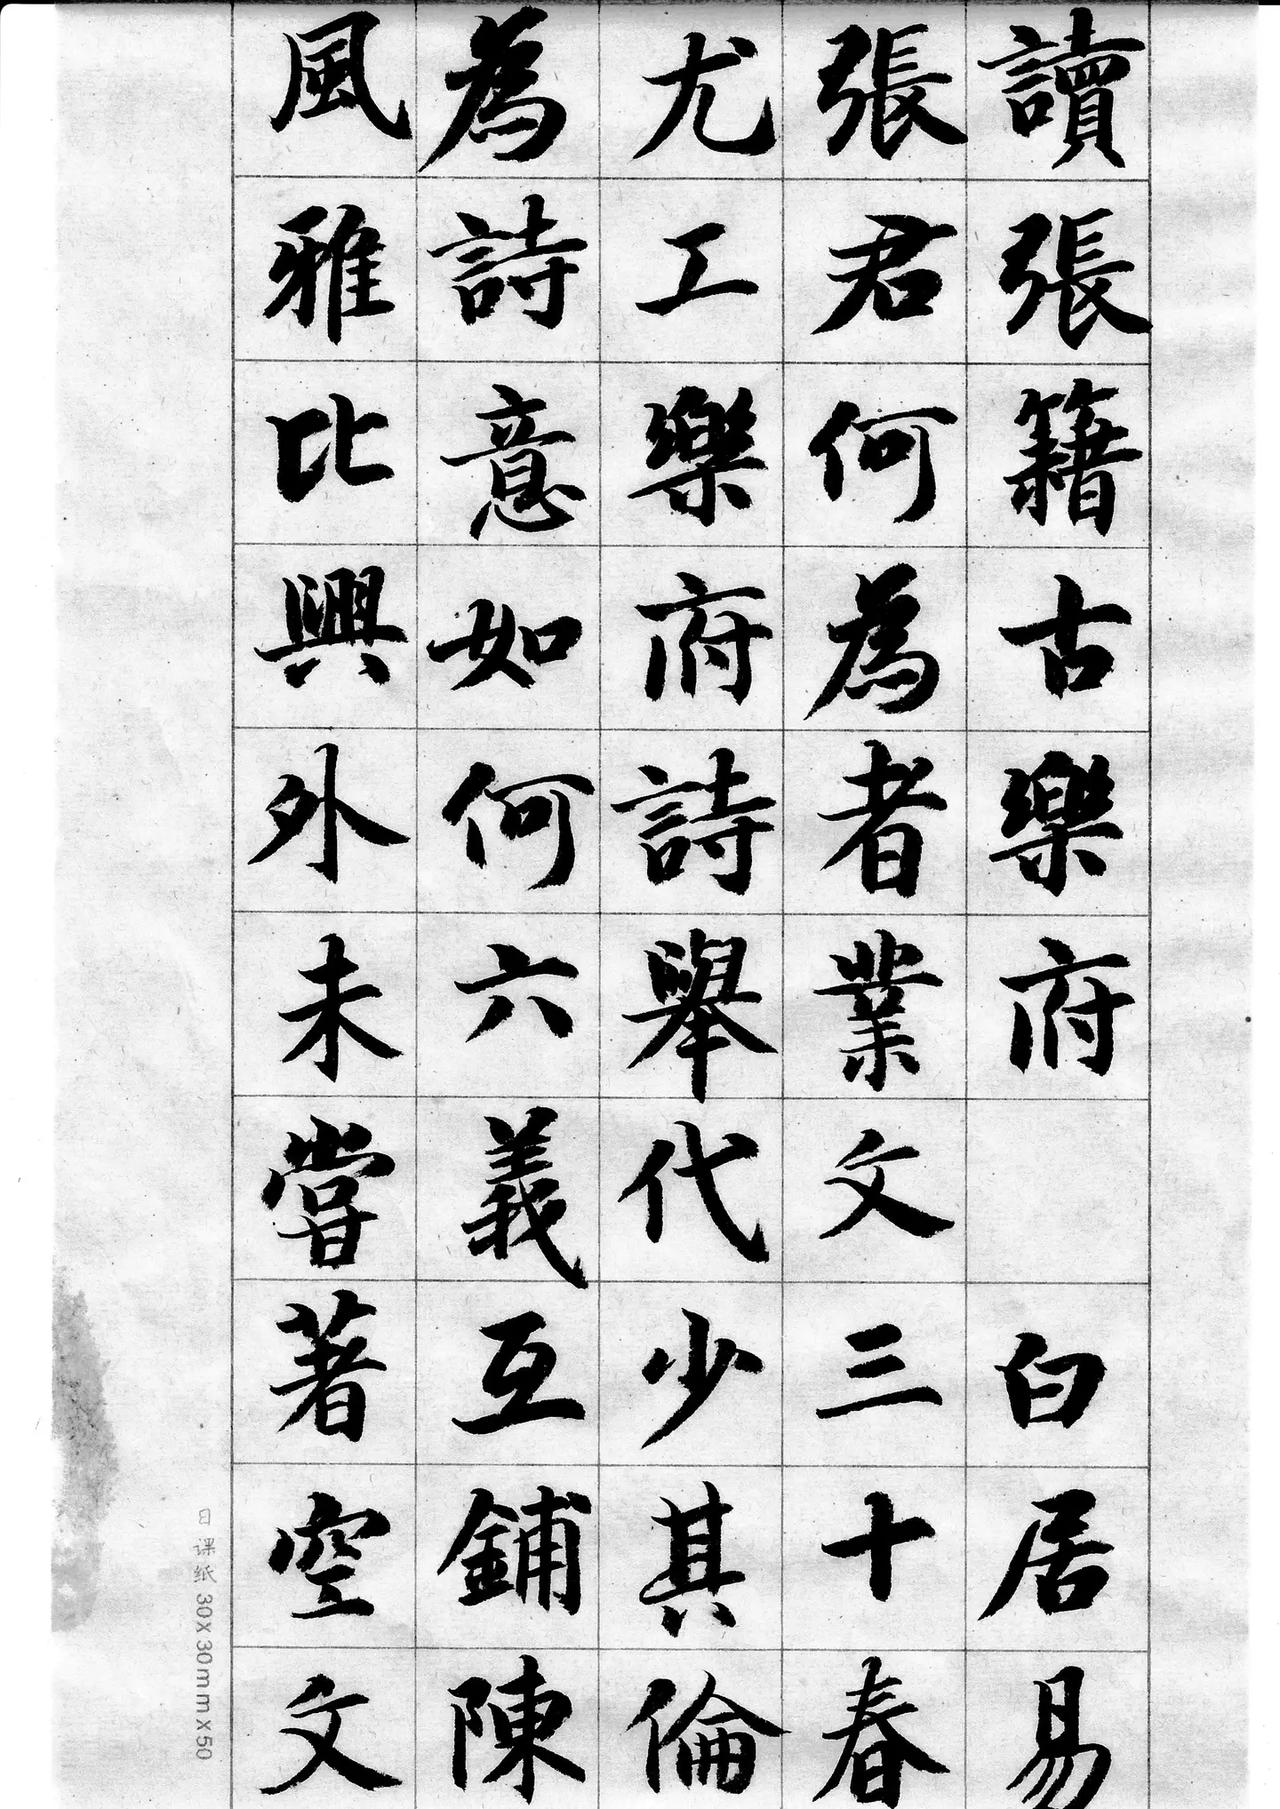 讀張籍古樂府 白居易
張君何為者業文三十春
尤工樂府詩舉代少其倫
為詩意如何六義互鋪陳
風雅比興外未嘗著空文
日课纸 30X30mmX50